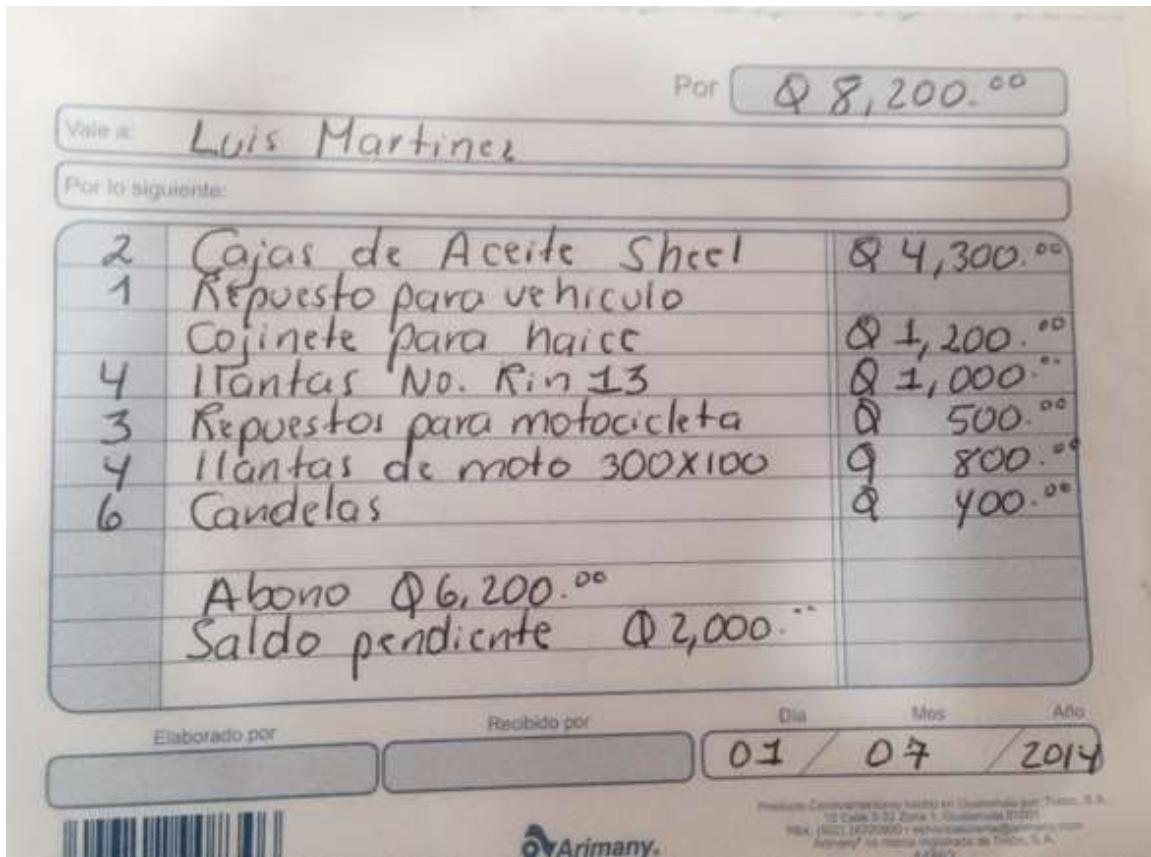 Por Q 8,200.00
Vale a: Luis Martinez
Por lo siguiente:
2 Cajas de Aceite Sheel Q 4,300.00
1 Repuesto para vehiculo
Cojinete para haice Q 1,200.00
4 llantas No. Rin 13 Q 1,000.00
3 Repuestos para motocicleta Q 500.00
4 llantas de moto 300X100 Q 800.00
6 Candelas Q 400.00
Abono Q 6,200.00
Saldo pendiente Q 2,000.00
Elaborado por Recibido por Día Mes Año
01 / 07 / 2014
Arimany.